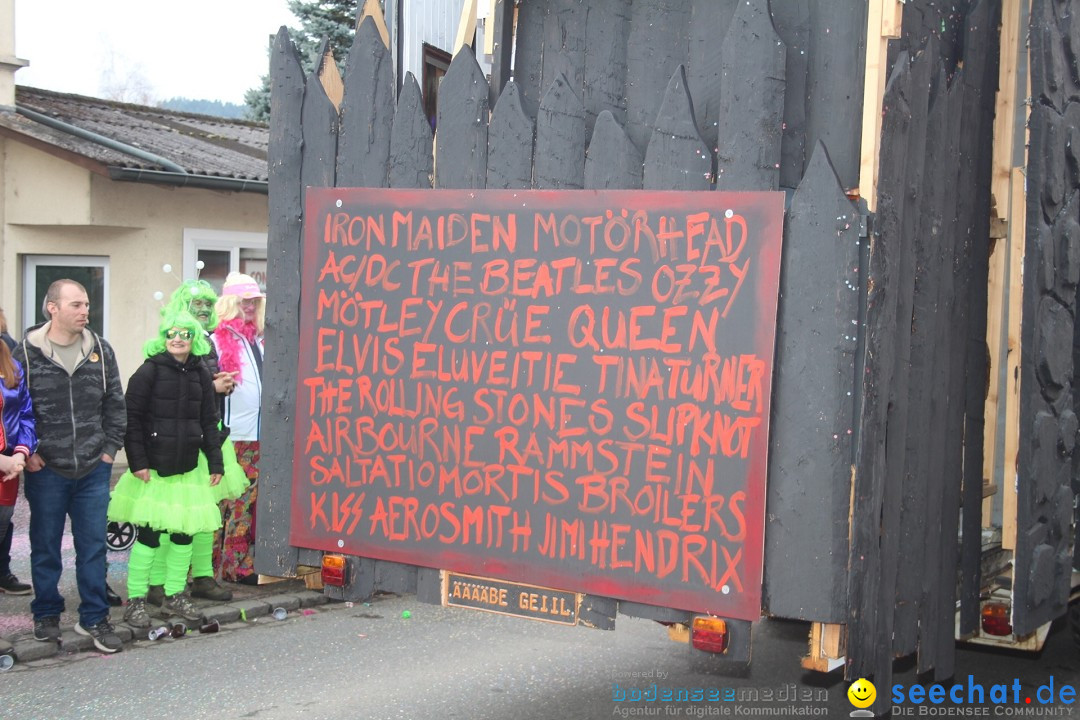 IRON MAIDEN MOTÖRHEAD
AC/DC THE BEATLES OZZY
MÖTLEY CRÜE QUEEN
ELVIS ELUVEITIE TINA TURNER
THE ROLLING STONES SLIPKNOT
AIRBOURNE RAMMSTEIN
SALTATIO MORTIS BRÖILERS
KISS AEROSMITH JIMI HENDRIX
ÄÄÄÄBE GEIIL
powered by
bodenseemedien
Agentur für digitale Kommunikation
seechat.de
Die Bodensee Community